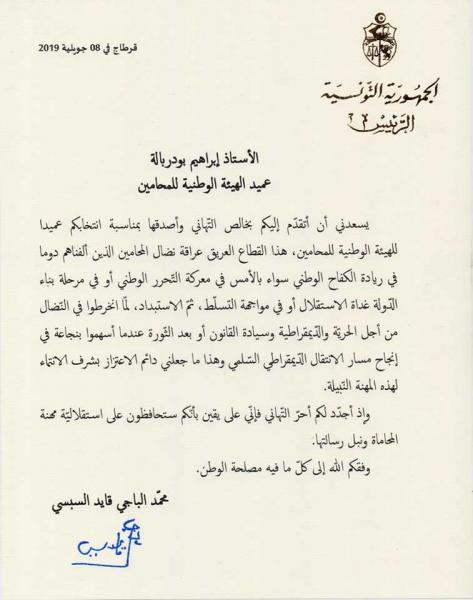 قرطاج في 08 جويلية 2019
الجمهورية التونسية
الرئيس
الأستاذ إبراهيم بودربالة
عميد الهيئة الوطنية للمحامين
يسعدني أن أتقدّم إليكم بخالص التّهاني وأصدقها بمناسبة انتخابكم عميدا
للهيئة الوطنية للمحامين، هذا القطاع العريق عراقة نضال المحامين الذين ألفناهم دوما
في ريادة الكفاح الوطني سواء بالأمس في معركة التّحرر الوطني أو في مرحلة بناء
الدّولة غداة الاستقلال أو في مواجهة التسلّط، ثمّ الاستبداد، لمّا انخرطوا في النّضال
من أجل الحريّة والدّيمقراطية وسيادة القانون أو بعد الثّورة عندما أسهموا بنجاعة في
إنجاح مسار الانتقال الدّيمقراطي السّلمي وهذا ما جعلني دائم الاعتزاز بشرف الانتماء
لهذه المهنة النّبيلة.
وإذ أجدّد لكم أحرّ التّهاني فإنّي على يقين بأنّكم ستحافظون على استقلاليّة مهنة
المحاماة ونبل رسالتها.
وفقكم الله إلى كلّ ما فيه مصلحة الوطن.
محمّد الباجي قايد السبسي